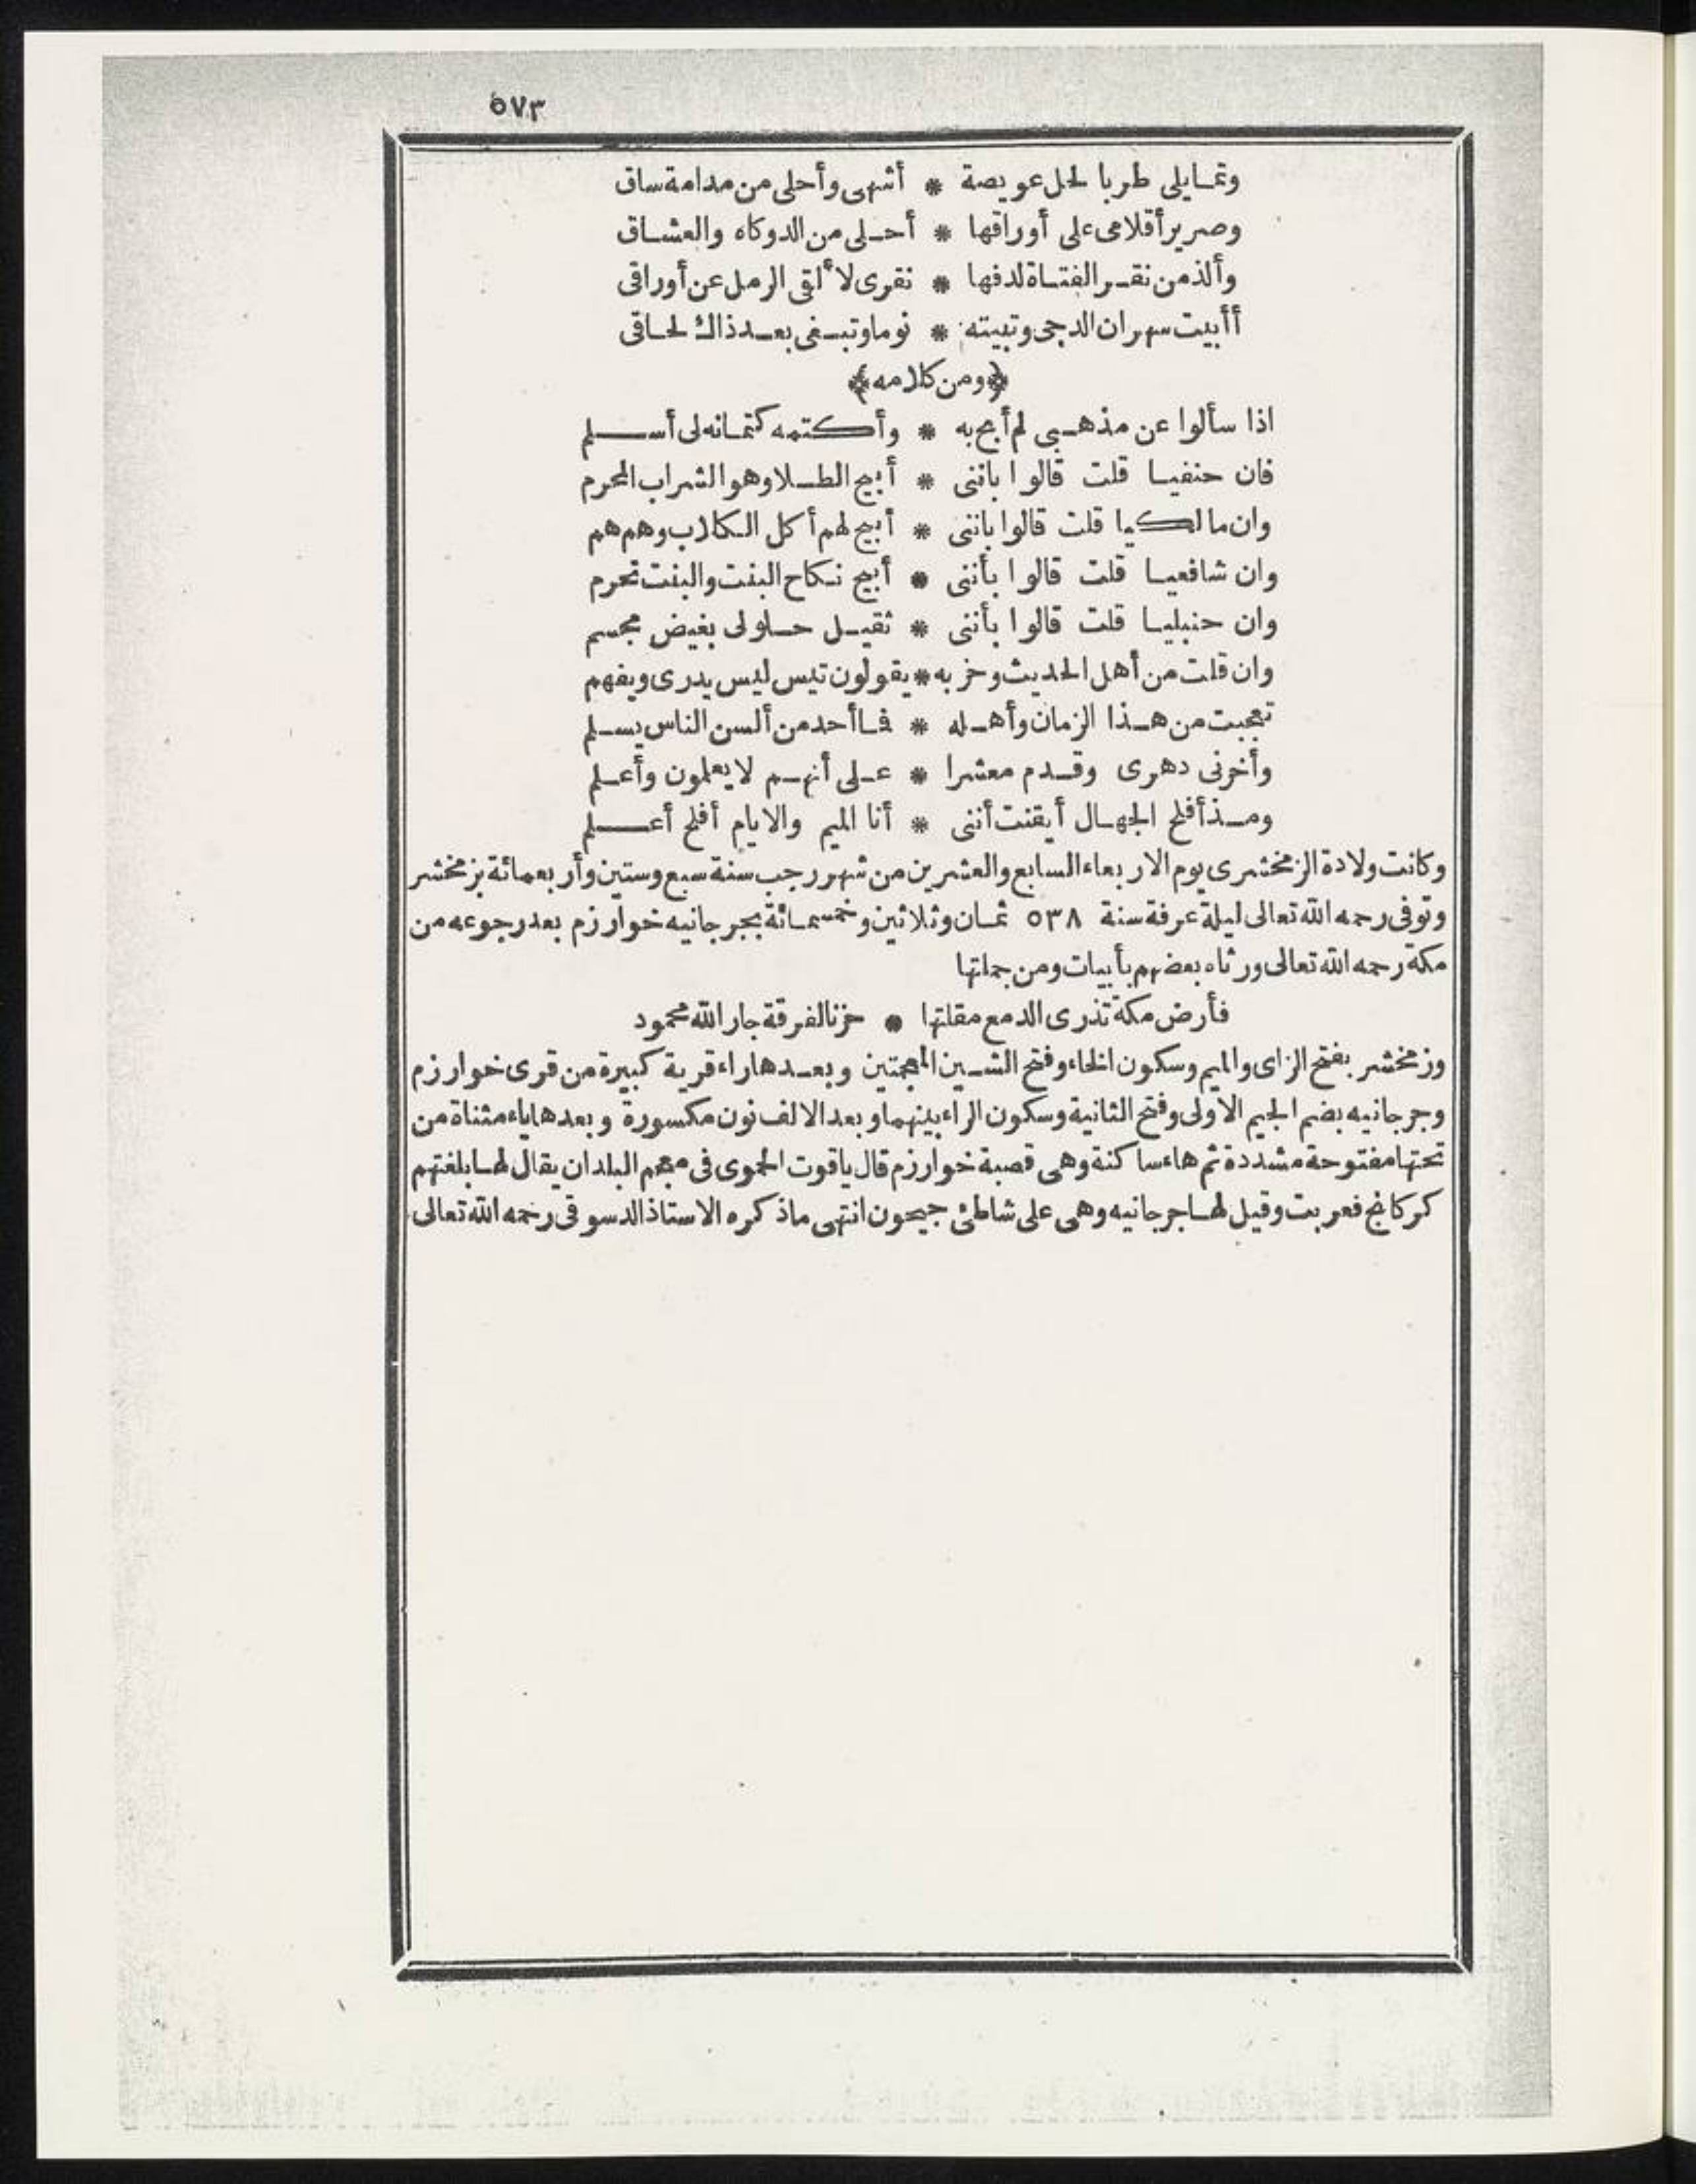 ٥٧٣
وتمايلى طربا لحل عويصة * أشهى وأحلى من مدامة ساق
وصرير أقلامى على أوراقها * أحلى من الدوكاه والعشاق
وألذ من نقر الفتاة لدفها * نقرى لألقى الرمل عن أوراقى
أأبيت سهران الدجى وتبيته * نوما وتبغى بعد ذاك لحاقى
﴿ومن كلامه﴾
اذا سألوا عن مذهبى لم أبح به * وأكتمه كتمانه لى أسلم
فان حنفيا قلت قالوا باننى * أبيح الطلا وهو الشراب المحرم
وان مالكيا قلت قالوا باننى * أبيح لهم أكل الكلاب وهم هم
وان شافعيا قلت قالوا بأننى * أبيح نكاح البنت والبنت تحرم
وان حنبليا قلت قالوا بأننى * ثقيل حلولى بغيض مجسم
وان قلت من أهل الحديث وحزبه * يقولون تيس ليس يدرى ويفهم
تعجبت من هذا الزمان وأهله * فما أحد من ألسن الناس يسلم
وأخرنى دهرى وقدم معشرا * على أنهم لا يعلمون وأعلم
ومذ أفلح الجهال أيقنت أننى * أنا الميم والايام أفلح أعلم
وكانت ولادة الزمخشرى يوم الاربعاء السابع والعشرين من شهر رجب سنة سبع وستين وأربعمائة بزمخشر
وتوفى رحمه الله تعالى ليلة عرفة سنة ٥٣٨ ثمان وثلاثين وخمسمائة بجرجانيه خوارزم بعد رجوعه من
مكة رحمه الله تعالى ورثاه بعضهم بأبيات ومن جملتها
فأرض مكة تذرى الدمع مقلتها * حزنا لفرقة جار الله محمود
وزمخشر بفتح الزاى والميم وسكون الخاء وفتح الشين المعجمتين وبعدها راء قرية كبيرة من قرى خوارزم
وجرجانيه بضم الجيم الاولى وفتح الثانية وسكون الراء بينهما وبعد الالف نون مكسورة وبعدها ياء مثناة من
تحتها مفتوحة مشددة ثم هاء ساكنة وهى قصبة خوارزم قال ياقوت الحموى فى معجم البلدان يقال لها بلغتهم
كركانج فعربت وقيل لها جرجانيه وهى على شاطئ جيحون انتهى ماذكره الاستاذ الدسوقى رحمه الله تعالى